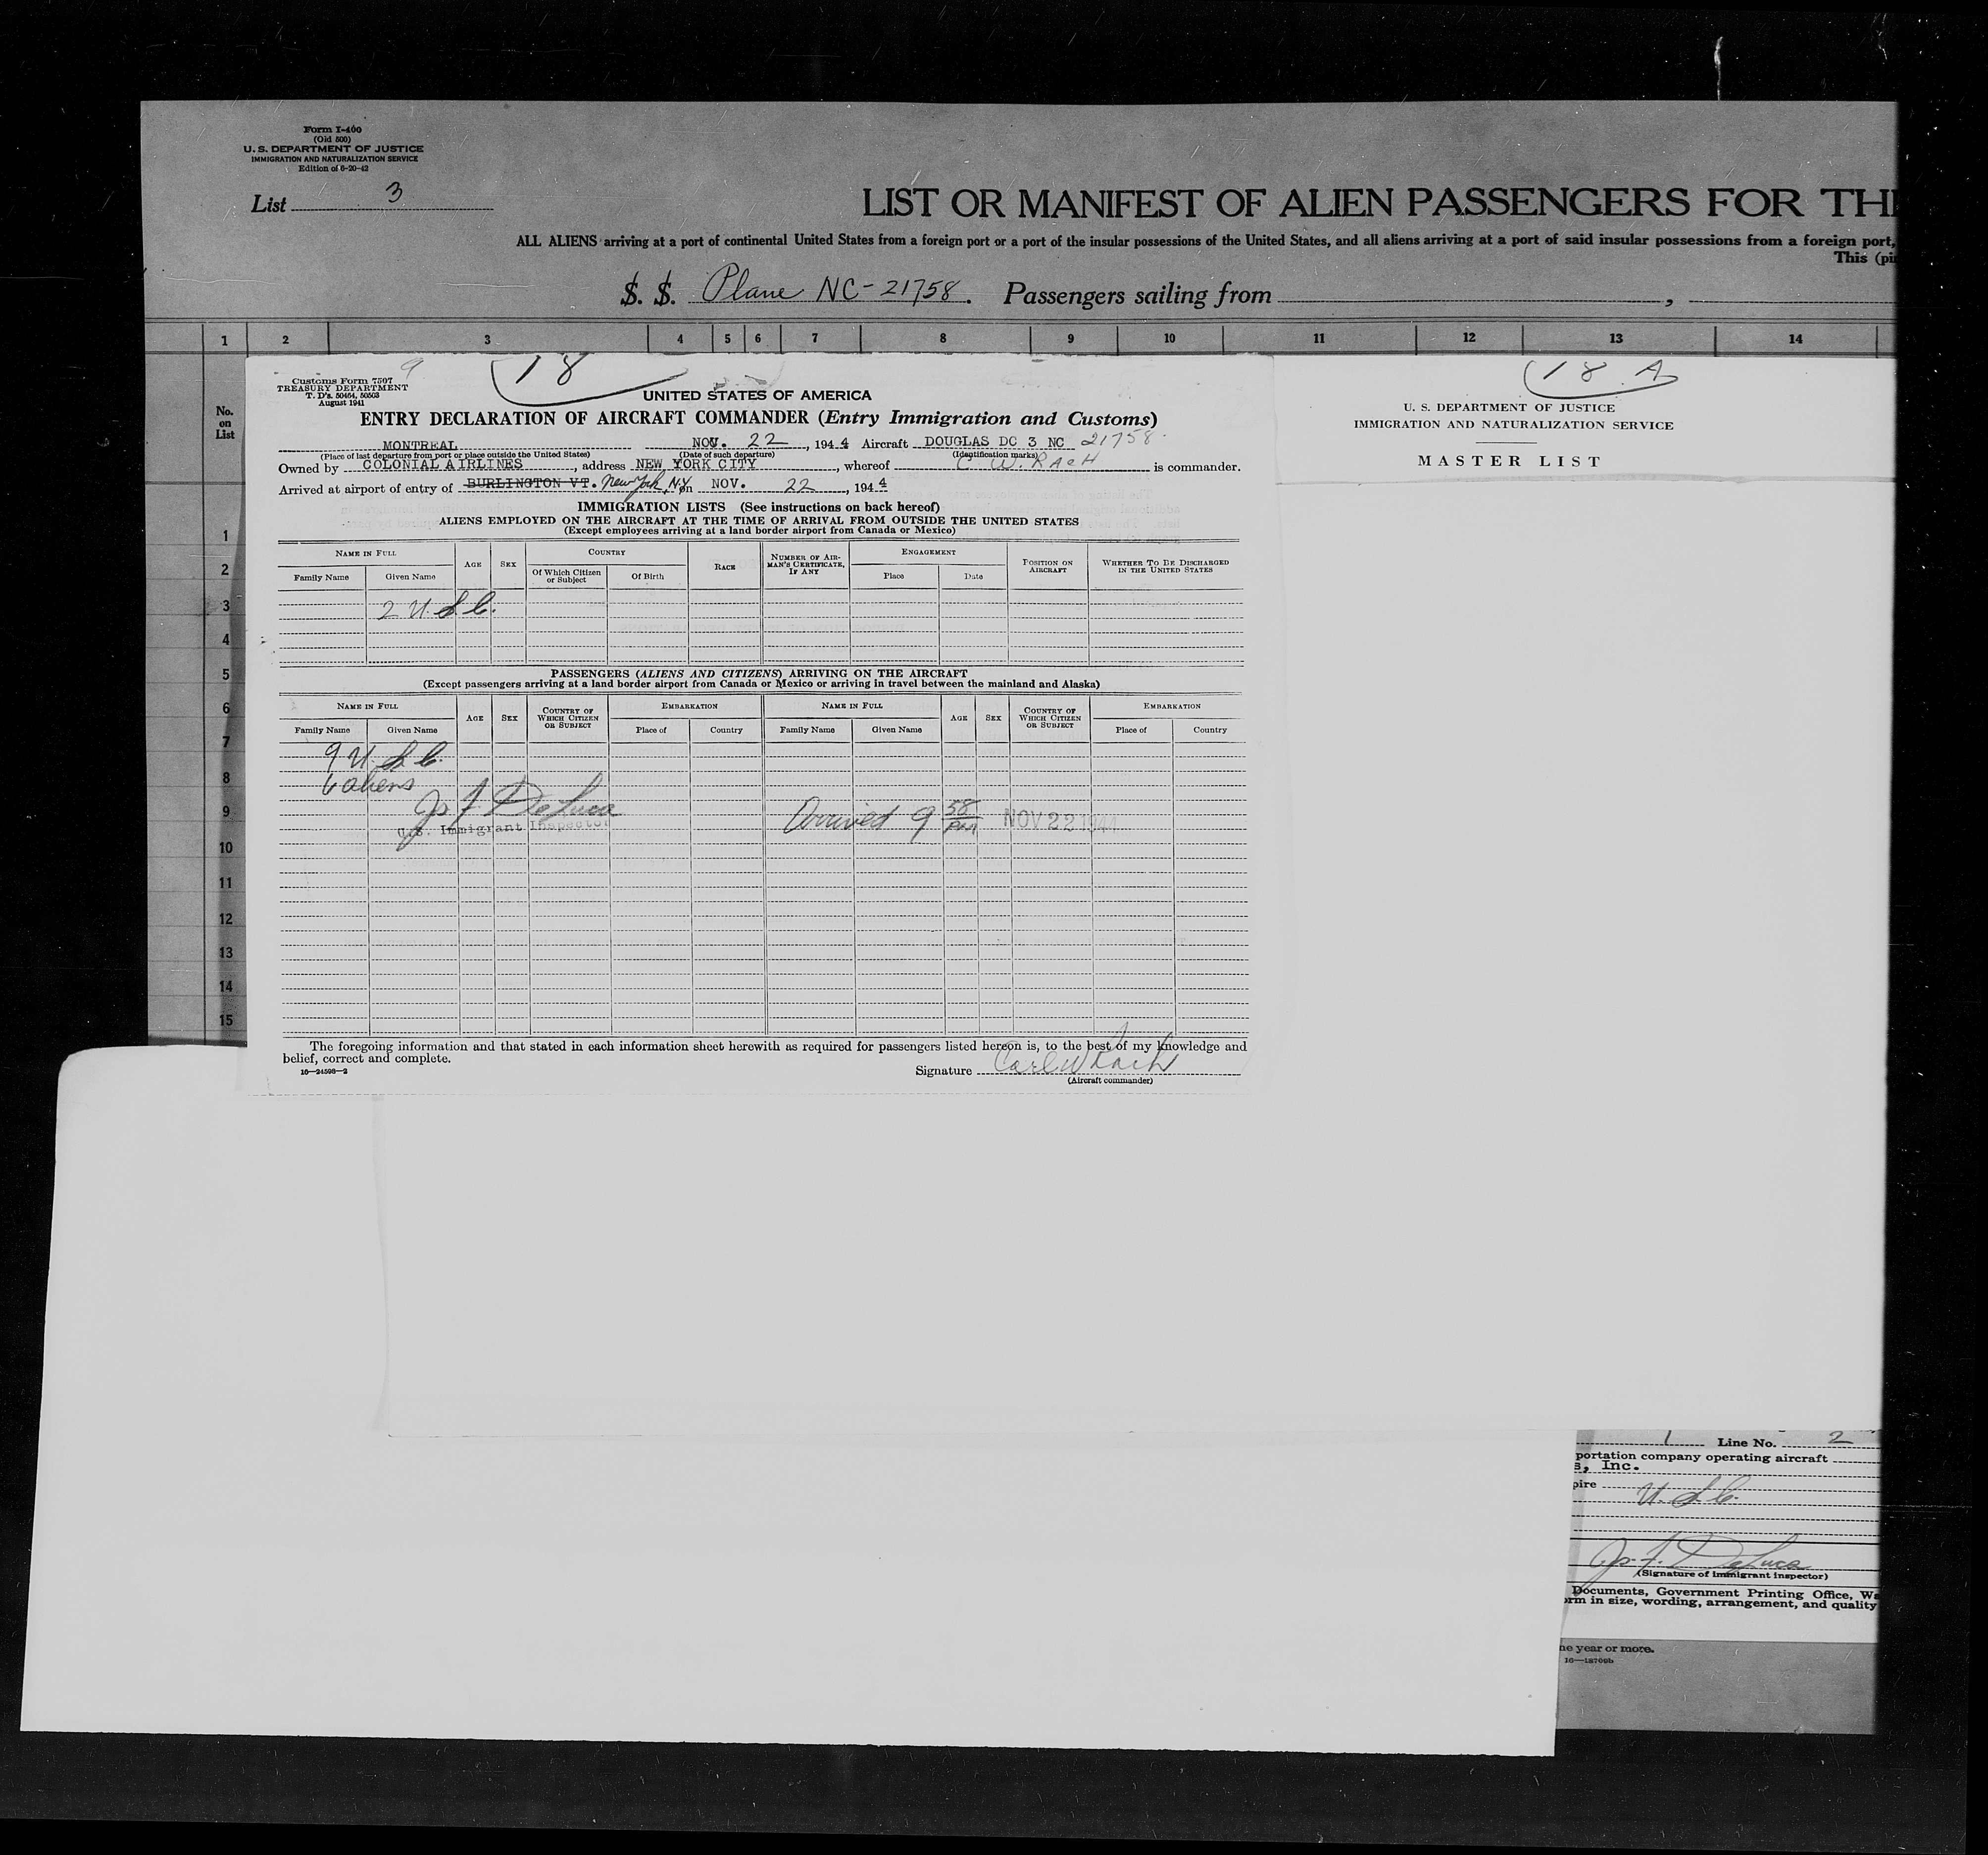 Form I-400
(Old 500)
U. S. DEPARTMENT OF JUSTICE
IMMIGRATION AND NATURALIZATION SERVICE
Edition of 6-20-42
List 3
LIST OR MANIFEST OF ALIEN PASSENGERS FOR TH
ALL ALIENS arriving at a port of continental United States from a foreign port or a port of the insular possessions of the United States, and all aliens arriving at a port of said insular possessions from a foreign port,
This (pi
S. S. Plane NC-21758. Passengers sailing from ,
1 2 3 4 5 6 7 8 9 10 11 12 13 14
No. on List
1
2
3
4
5
6
7
8
9
10
11
12
13
14
15
9
18
Customs Form 7507
TREASURY DEPARTMENT
T. D's. 50464, 50503
August 1941
UNITED STATES OF AMERICA
ENTRY DECLARATION OF AIRCRAFT COMMANDER (Entry Immigration and Customs)
MONTREAL NOV. 22, 1944 Aircraft DOUGLAS DC 3 NC 21758
(Place of last departure from port or place outside the United States) (Date of such departure) (Identification marks)
Owned by COLONIAL AIRLINES, address NEW YORK CITY, whereof C W. RACH is commander.
Arrived at airport of entry of BURLINGTON VT. New York, N.Y. on NOV. 22, 1944
IMMIGRATION LISTS (See instructions on back hereof)
ALIENS EMPLOYED ON THE AIRCRAFT AT THE TIME OF ARRIVAL FROM OUTSIDE THE UNITED STATES
(Except employees arriving at a land border airport from Canada or Mexico)
NAME IN FULL AGE SEX COUNTRY RACE NUMBER OF AIRMAN'S CERTIFICATE, IF ANY ENGAGEMENT POSITION ON AIRCRAFT WHETHER TO BE DISCHARGED IN THE UNITED STATES
Family Name Given Name Of Which Citizen or Subject Of Birth Place Date
2 U.S.C.
PASSENGERS (ALIENS AND CITIZENS) ARRIVING ON THE AIRCRAFT
(Except passengers arriving at a land border airport from Canada or Mexico or arriving in travel between the mainland and Alaska)
NAME IN FULL AGE SEX COUNTRY OF WHICH CITIZEN OR SUBJECT EMBARKATION NAME IN FULL AGE SEX COUNTRY OF WHICH CITIZEN OR SUBJECT EMBARKATION
Family Name Given Name Place of Country Family Name Given Name Place of Country
9 U.S.C.
6 aliens
Jos F DeLuca
U.S. Immigrant Inspector
Arrived 9 58 PM NOV 22 1944
The foregoing information and that stated in each information sheet herewith as required for passengers listed hereon is, to the best of my knowledge and
belief, correct and complete.
16—24598-2
Signature Carl W Rach
(Aircraft commander)
18 A
U. S. DEPARTMENT OF JUSTICE
IMMIGRATION AND NATURALIZATION SERVICE
MASTER LIST
1 Line No. 2
portation company operating aircraft
s, Inc.
pire
U.S.C.
Jos. F. DeLuca
(Signature of immigrant inspector)
Documents, Government Printing Office, Wa
orm in size, wording, arrangement, and quality
ne year or more.
16—18706b